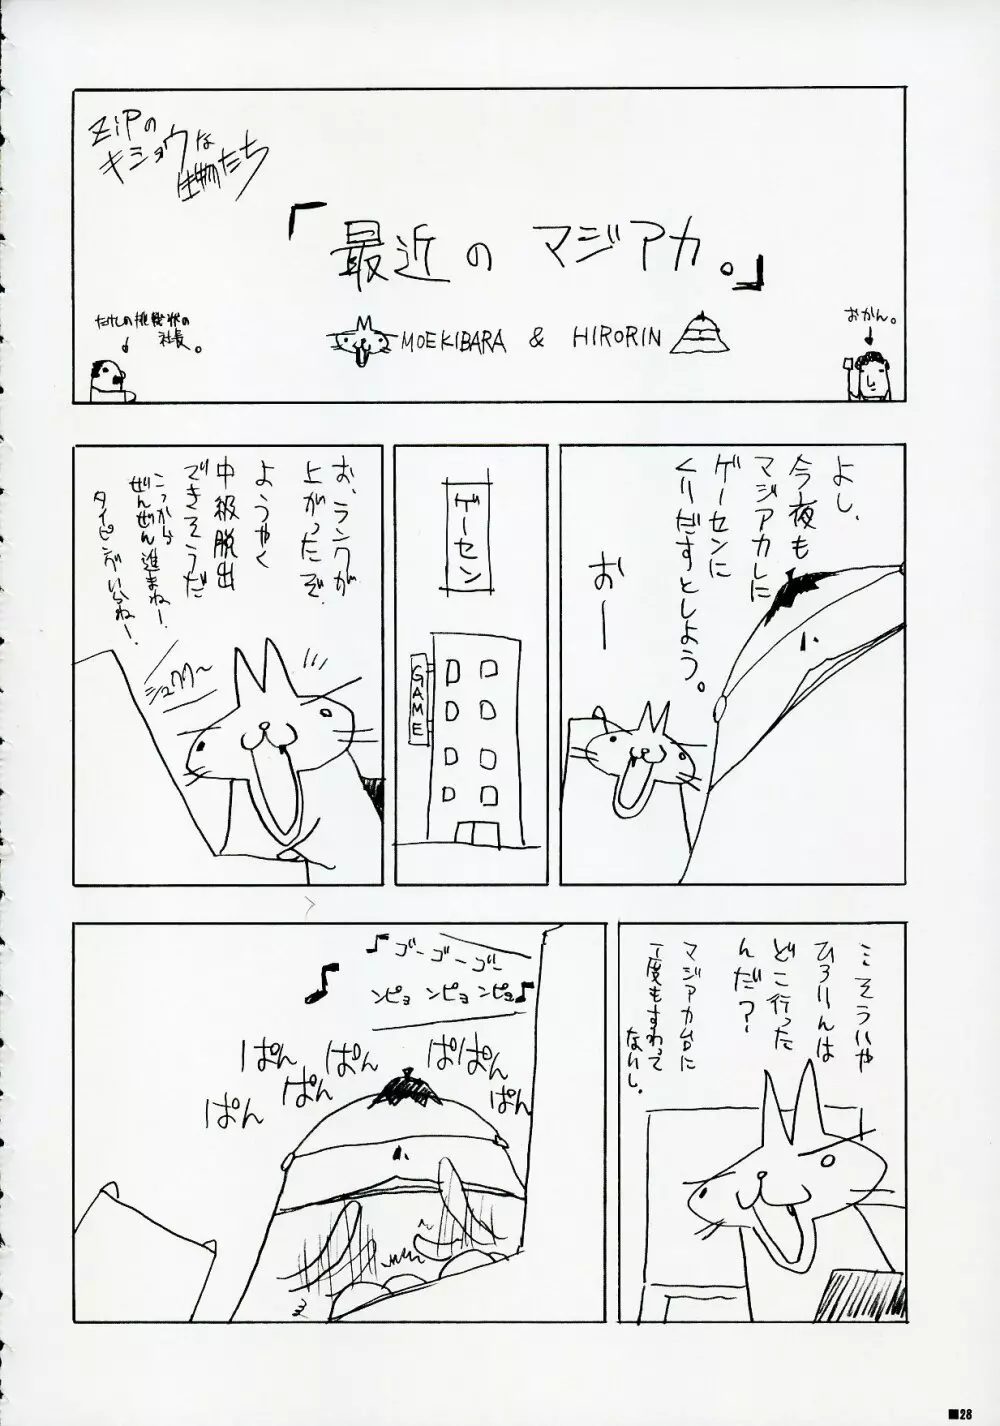 ZiPの
キショウな
生物たち
「最近のマジアカ。」
たけしの挑戦状の
社長。
MOEKIBARA & HIRORIN
おかん。
よし、
今夜も
マジアカしに
ゲーセンに
くりだすとしよう。
おー
ゲーセン
GAME
お、ランクが
上がったぞ。
ようやく
中級脱出
できそうだ
こっから
ぜんぜん進まねー!
タイピングいらねー!
そういや
ひろりんは
どこ行った
んだ?
マジアカ台に
1度もすわって
ないし。
♪ゴーゴーゴー
ンピョ ンピョ ンピョ♪
ぱん
ぱん
ぱん
ぱん
ぱぱん
ぱん
28